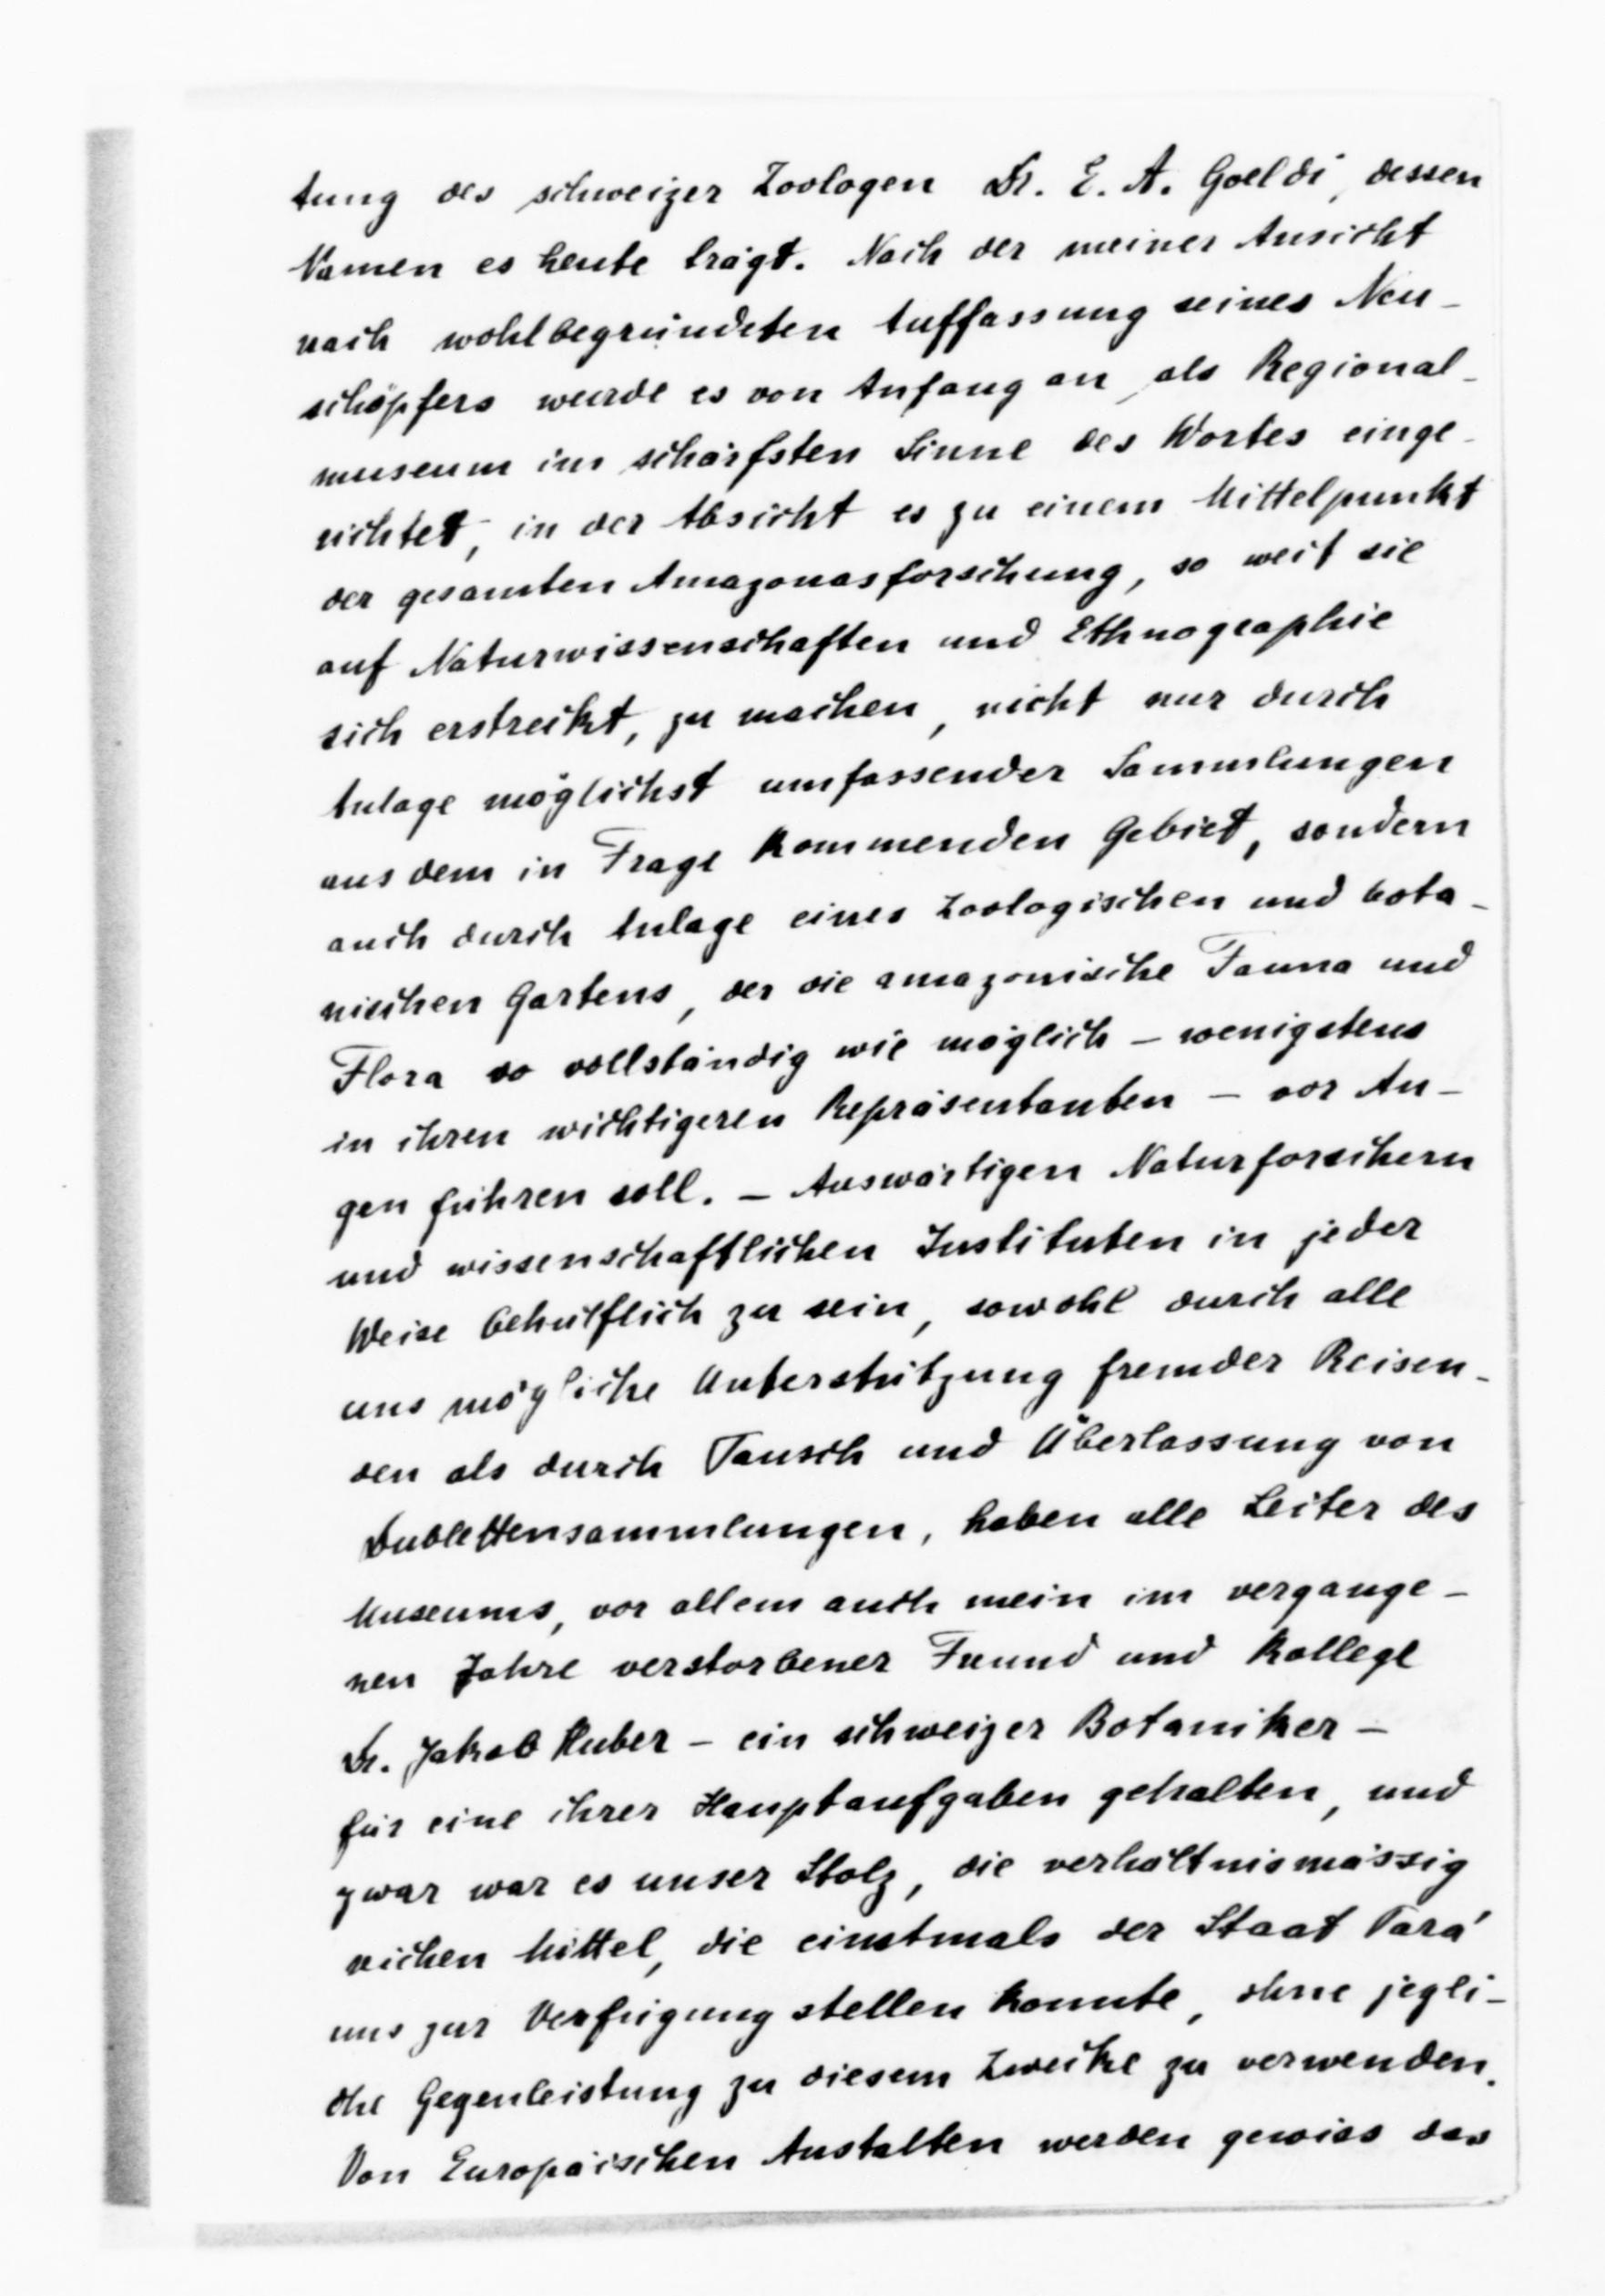 tung des schweizer Zoologen Dr. E. A. Goeldi, dessen
Namen es heute trägt. Nach der meiner Ansicht
nach wohlbegründeten Auffassung seines Neu-
schöpfers wurde es von Anfang an, als Regional-
museum im schärfsten Sinne des Wortes einge-
richtet, in der Absicht es zu einem Mittelpunkt
der gesamten Amazonasforschung, so weit sie
auf Naturwissenschaften und Ethnographie
sich erstreckt, zu machen, nicht nur durch
Anlage möglichst umfassender Sammlungen
aus dem in Frage kommenden Gebiet, sondern
auch durch Anlage eines Zoologischen und bota-
nischen Gartens, der die amazonische Fauna und
Flora so vollständig wie möglich – wenigstens
in ihren wichtigeren Repräsentanten – vor Au-
gen führen soll. – Auswärtigen Naturforschern
und wissenschaftlichen Instituten in jeder
Weise behülflich zu sein, sowohl durch alle
uns mögliche Unterstützung fremder Reisen-
den als durch Tausch und Überlassung von
Dublettensammlungen, haben alle Leiter des
Museums, vor allem auch mein im vergange-
nen Jahre verstorbener Freund und Kollege
Dr. Jakob Huber – ein schweizer Botaniker –
für eine ihrer Hauptaufgaben gehalten, und
zwar war es unser Stolz, die verhältnismässig
reichen Mittel, die einstmals der Staat Pará
uns zur Verfügung stellen konnte, ohne jegli-
che Gegenleistung zu diesem Zwecke zu verwenden.
Von Europäischen Anstalten werden gewiss das